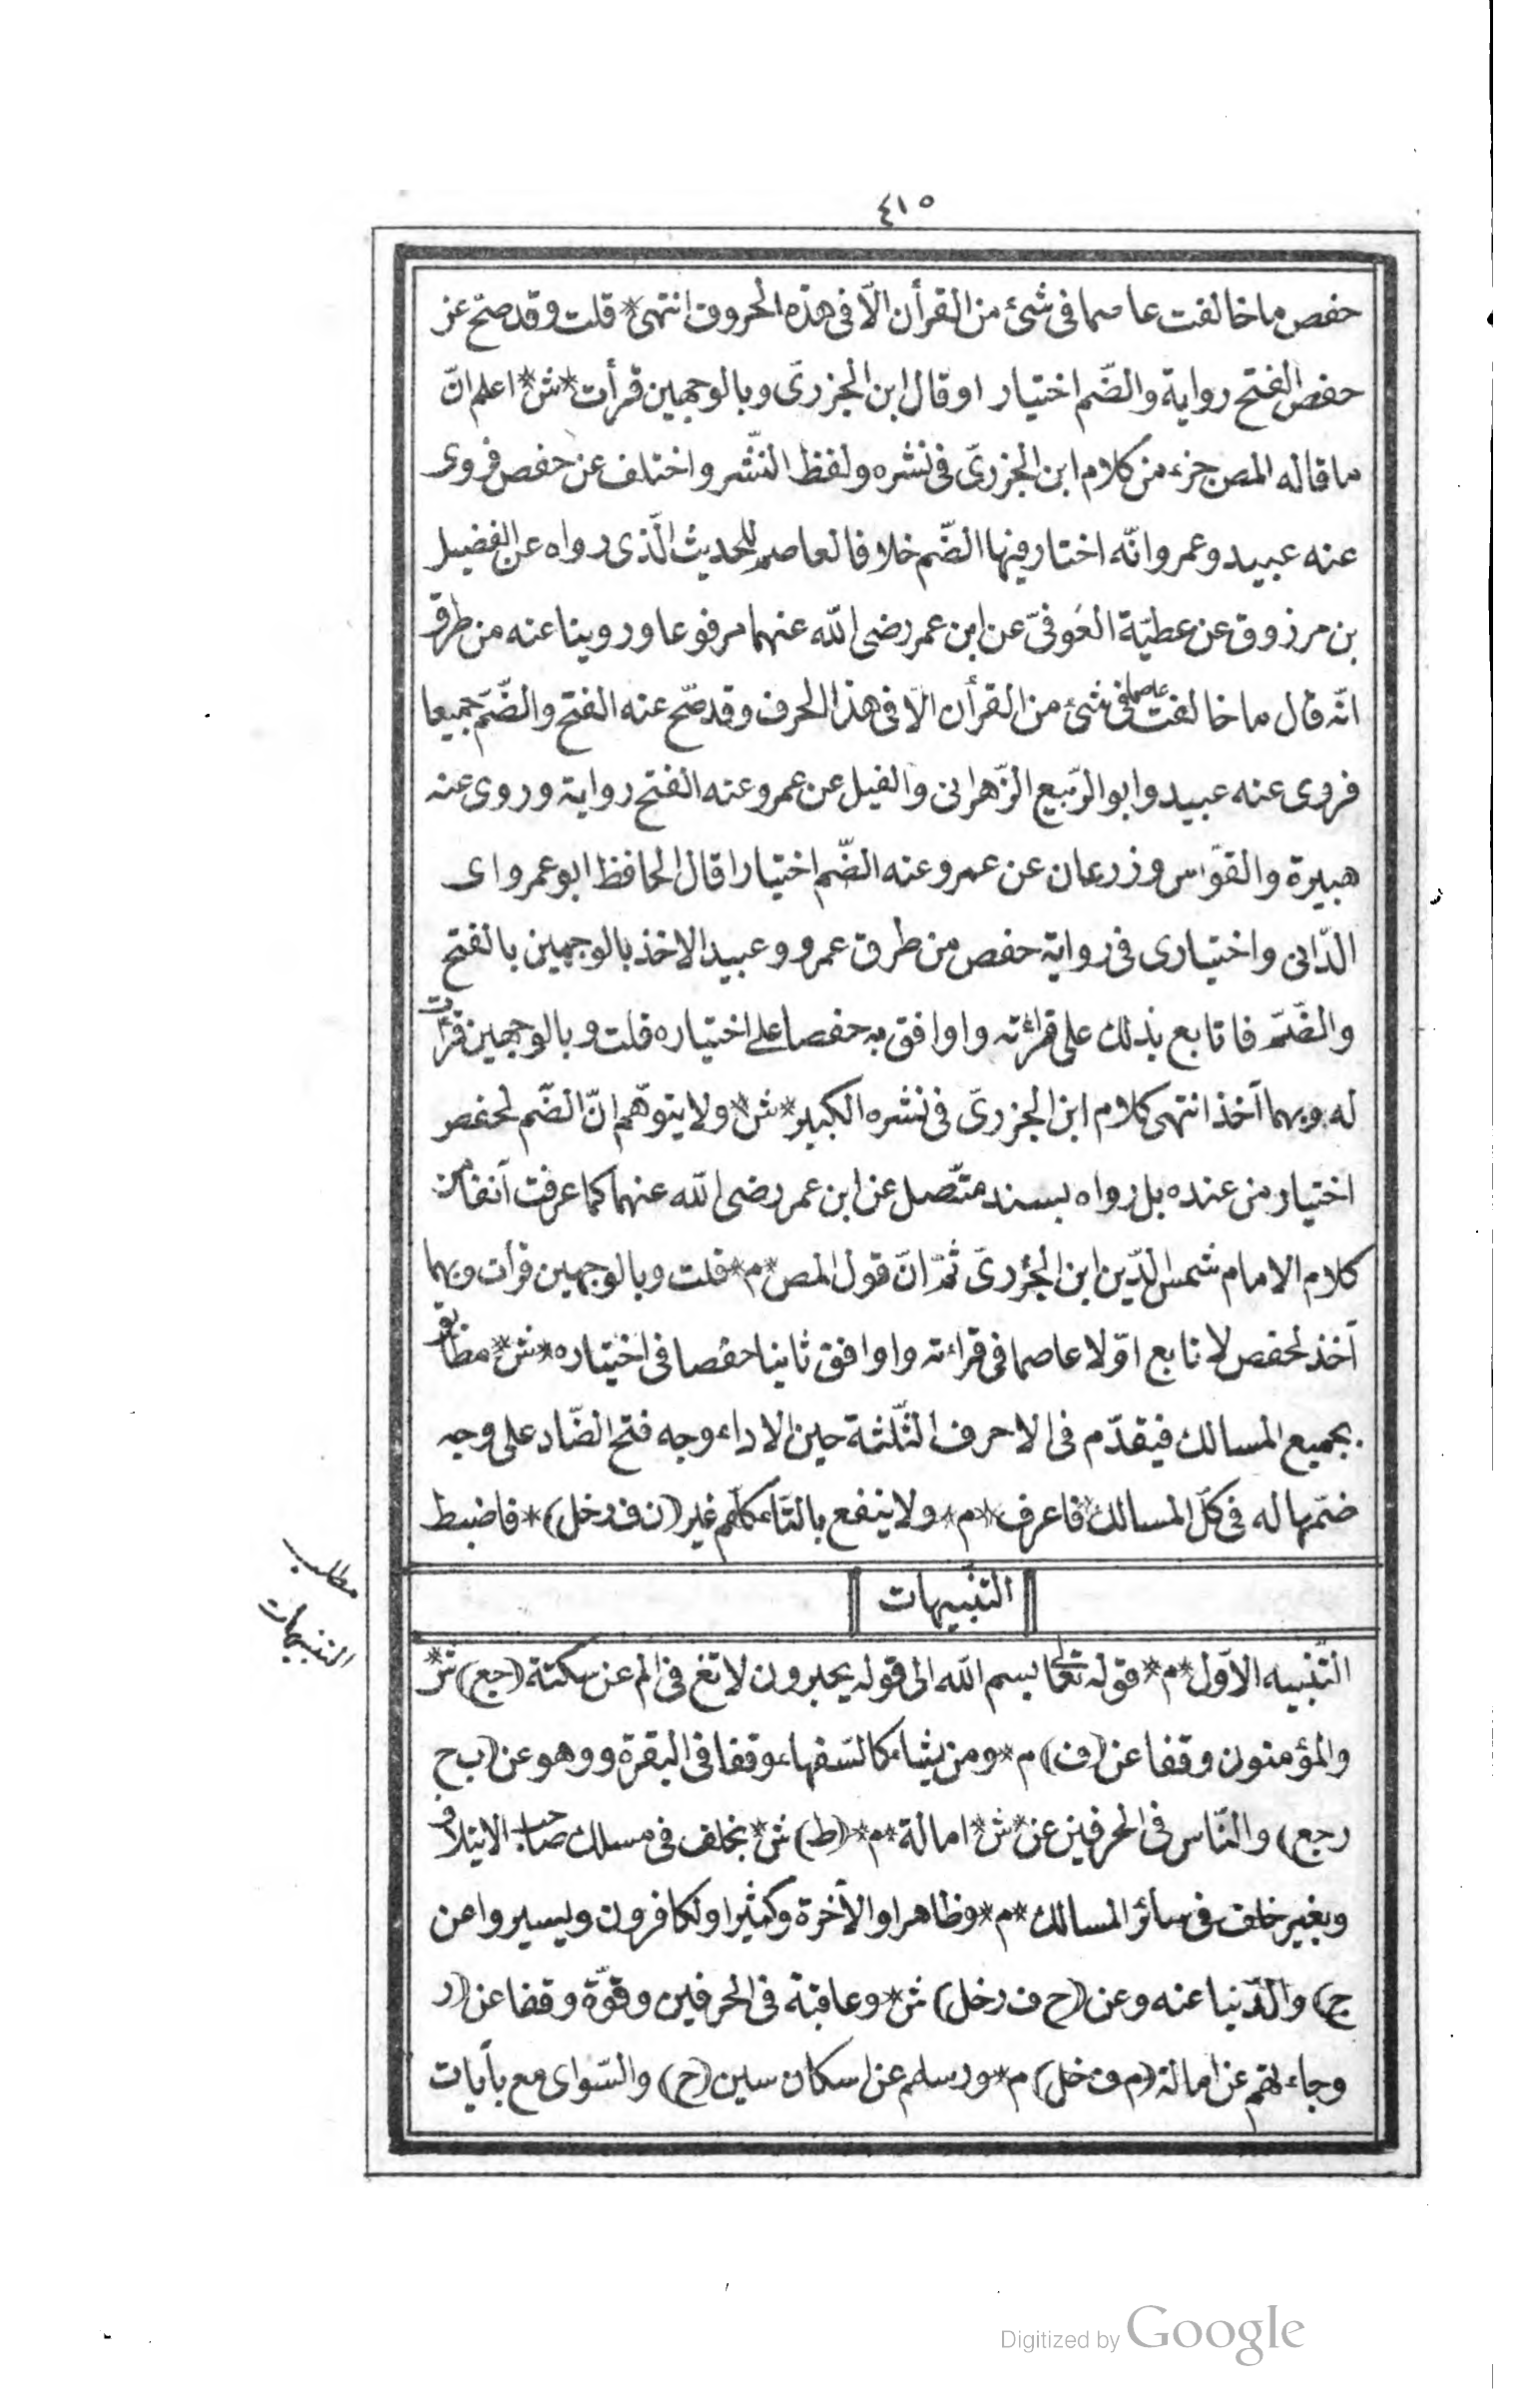 ٤١٥
حفص ما خالفت عاصما فى شئ من القرأن الّا فى هذه الحروف انتهى * قلت وقد صحّ عن
حفص الفتح رواية والضّم اختيار ا وقال ابن الجزرىّ وبالوجهين قرأت * ش * اعلم انّ
ما قاله المص جزء من كلام ابن الجزرىّ فى نشره ولفظ النّشر واختلف عن حفص فروى
عنه عبيد وعمرو انّه اختار فيها الضّم خلافا لعاصم للحديث الّذى رواه عن الفضيل
بن مرزوق عن عطيّة العَوفىّ عن ابن عمر رضى الله عنهما مرفوعا وروينا عنه من طرق
انّه قال ما خالفت عاصما فى شئ من القرأن الّا فى هذا الحرف وقد صّح عنه الفتح والضّم جميعا
فروى عنه عبيد وابو الرّبيع الزّهرانى والفيل عن عمرو عنه الفتح رواية وروى عنه
هبيرة والقوّاس وزرعان عن عمرو عنه الضّم اختيارا قال الحافظ ابو عمرو اى
الدّانى واختيارى فى رواية حفص من طرق عمرو وعبيد الاخذ بالوجهين بالفتح
والضّم فاتابع بذلك على قرائته واوافق به حفصا على اختياره قلت وبالوجهين قرأت
له وبهما آخذ انتهى كلام ابن الجزرىّ فى نشره الكبير * ش * ولا يتوهّم انّ الضّم لحفص
اختيار من عنده بل رواه بسند متّصل عن ابن عمر رضى الله عنهما كما عرفت آنفا من
كلام الامام شمس الدّين ابن الجزرىّ ثمّ انّ قول المص * م * قلت وبالوجهين قرأت وبهما
آخذ لحفص لاتابع اوّلا عاصما فى قراءته واوافق ثانيا حفصا فى اختياره * ش * مطابق
بجميع المسالك فيقدّم فى الاحرف الثّلثة حين الاداء وجه فتح الضّاد على وجه
ضمّها له فى كلّ المسالك فاعرف * م * ولا ينفع بالتّاء كلّهم غير (ن ف ر خل) * فاضبط
التنبيهات
مطلب
التنبيهات
التّنبيه الاوّل * م * قوله تعالى بسم الله الى قوله يحبرون لا تغ فى الم عن سكتة (جع) ش *
والمؤمنون وقفا عن (ف) م * ومن يشاء كالسّفهاء وقفا فى البقرة ووهو عن (ب ح
ر جع) والنّاس فى الحرفين عن * ش * امالة * م * (ط) ش * بخلف فى مسلك صاحب الايتلاف
وبغير خلف فى سائر المسالك * م * وظاهرا والآخرة وكثيرا ولكافرون ويسيروا عن
(ج) والدّنيا عنه وعن (ح ف ر خل) ش * وعاقبة فى الحرفين وقوّة وقفا عن (ر
وجاءتهم عن امالة (م ف خل) م * ورسلهم عن اسكان سين (ح) والسّواى مع بآيات
Digitized by Google